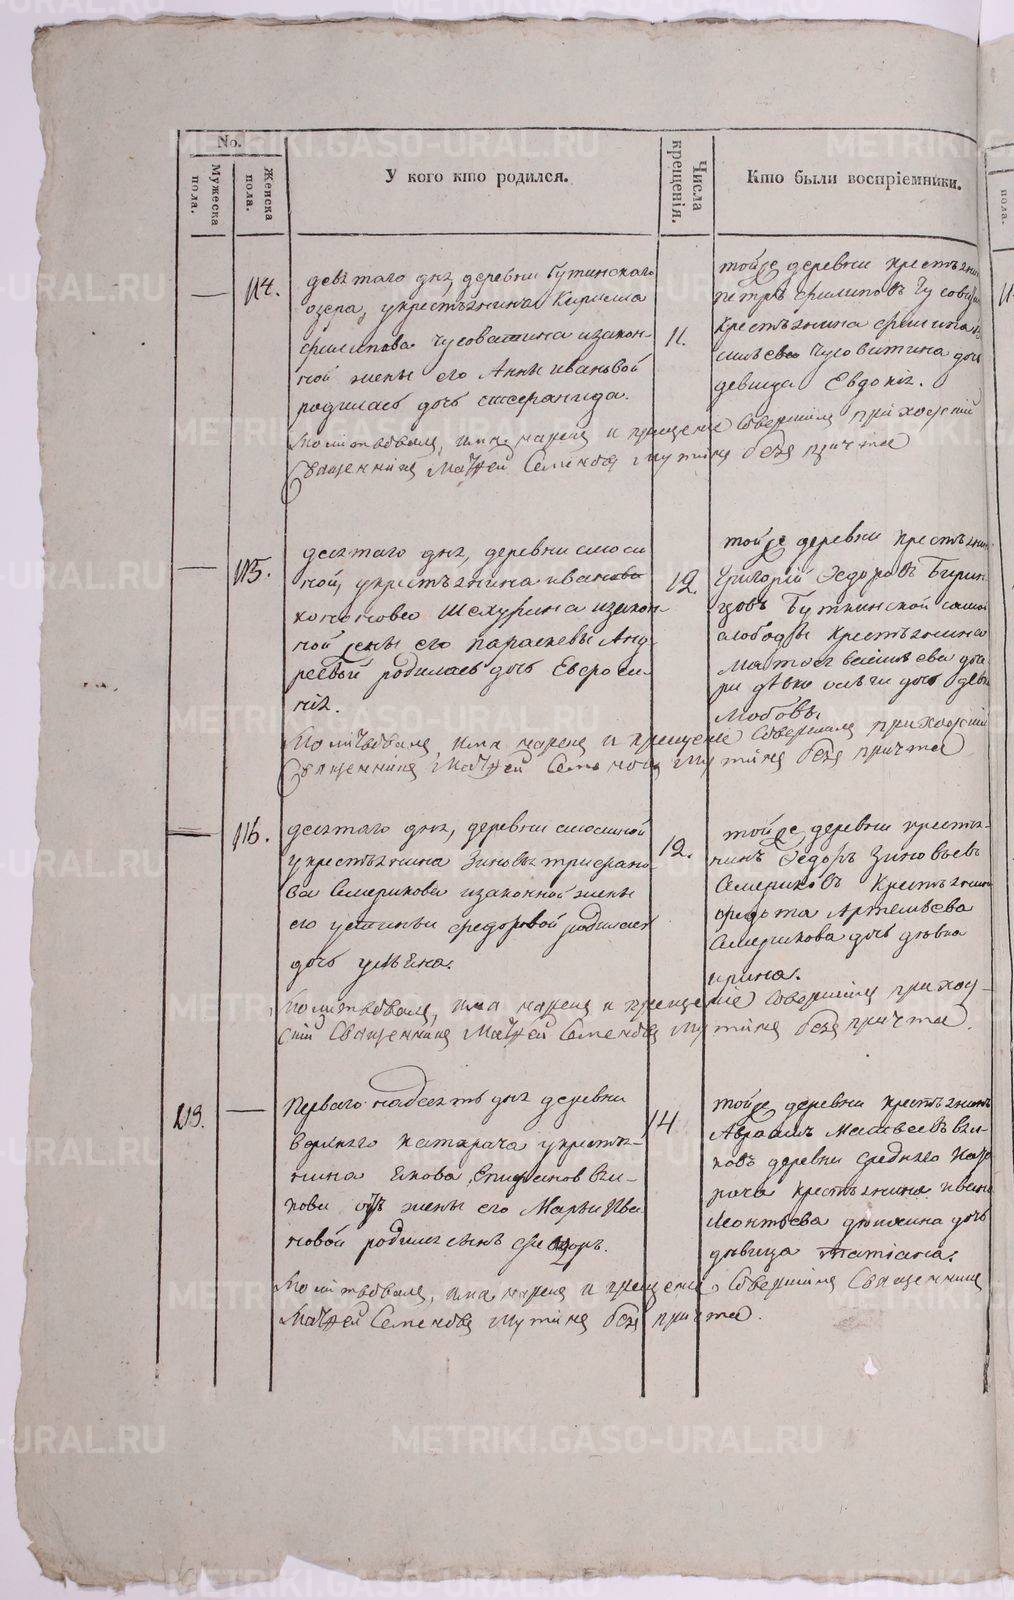 No.
Мужеска пола.
Женска пола.
У кого кто родился.
Числа крещенія.
Кто были воспріемники.
114.
девятаго дня деревни Бутинскаго
озера, укрестьянина Кирила
филипова Чусовитина изакон-
ной жены его Анны ивановой
родилась дочь
11.
тойже деревни крестьянин
петръ филиповъ Чусовитин
крестьянина филипа
Чусовитина дочь
девица Евдокія.
Молитвовалъ, имя нарекъ и крещеніе совершилъ приходскій
Священникъ Матѳей Семеновъ Мутинъ безъ причта
115.
десятаго дня, деревни
ной, укрестьянина иванова
изакон-
ной жены его параскевы Анд
реевой родилась дочь Евфроси-
нія.
12.
тойже деревни крестьянин
Григорій Ѳедоровъ
Буткинской
слободы крестьянина
дочь девка
Любовь.
Молитвовалъ, имя нарекъ и крещеніе совершилъ приходскій
Священникъ Матѳей Семеновъ Мутинъ безъ причта
116.
десятаго дня, деревни
укрестьянина Зиновья трифано-
ва изаконной жены
его устиньи федоровой родилась
дочь ульяна.
12.
тойже деревни кресть-
янинъ Ѳедоръ Зиновьевъ
крестьянина
федота Артемьева
дочь девка
ирина.
Молитвовалъ, имя нарекъ и крещеніе совершилъ приход-
скій Священникъ Матѳей Семеновъ Мутинъ безъ причта.
113.
Перваго надесять дня деревни
верхняго катарача укрестья-
нина Якова Епифанова
отъ жены его Марьи Ива
новой родился сынъ федоръ.
14
тойже деревни крестьянинъ
Авраамъ Матвеевъ
деревни средняго ката
рача крестьянина ивана
Леонтьева дочь
девица татіана.
Молитвовалъ, имя нарекъ и крещеніе совершилъ Священникъ
Матѳей Семеновъ Мутинъ безъ причта.
METRIKI.GASO-URAL.RU